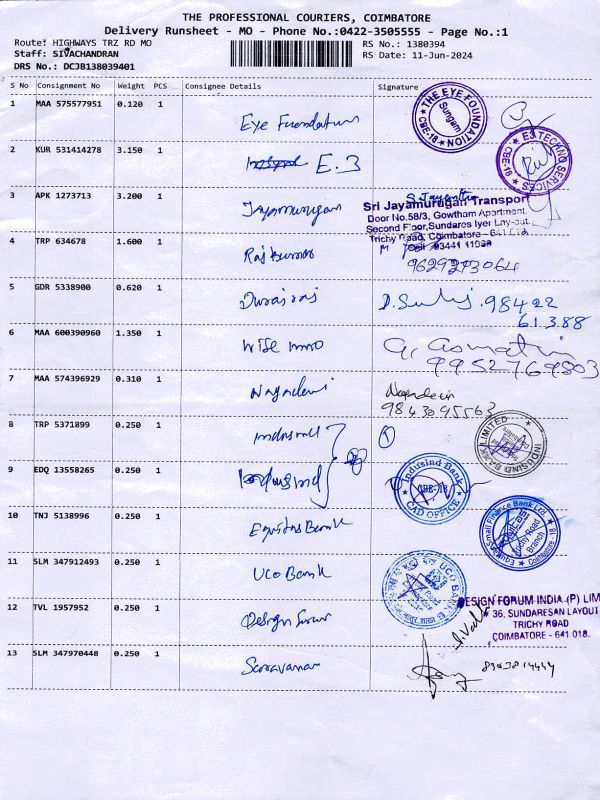 THE PROFESSIONAL COURIERS, COIMBATORE
Delivery Runsheet - MO - Phone No.:0422-3505555 - Page No.:1
Route: HIGHWAYS TRZ RD MO
RS No.: 1380394
Staff: SIVACHANDRAN
RS Date: 11-Jun-2024
DRS No.: DCJB138039401
S No Consignment No Weight PCS Consignee Details Signature
1 MAA 575577951 0.120 1 Eye Foundation
THE EYE FOUNDATION
Sungam
CBE-18
2 KUR 531414278 3.150 1 E.3
E3 TECHNO SERVICES
CBE-18
3 APK 1273713 3.200 1 Jayamurugan
S. Jayanthi
Sri Jayamurugan Transport
Door No.58/3, Gowtham Apartment.
Second Floor,Sundares Iyer Lay-out.
Trichy Road, Coimbatore - 641 018.
Cell :
4 TRP 634678 1.600 1 Rajkumar
9629273064
5 GDR 5338900 0.620 1 Durairaj
98422
61388
6 MAA 600390960 1.350 1 Wise
G. Gomathi
9952769803
7 MAA 574396929 0.310 1 Nagadevi
Nagadevi
9843095563
8 TRP 5371899 0.250 1 Indusind
INDUSIND BANK LIMITED
9 EDQ 13558265 0.250 1 Indusind
Indusind Bank
CBE-18
CAD OFFICE
10 TNJ 5138996 0.250 1 Equitas Bank
Equitas Small Finance Bank Ltd.
Trichy Road
Branch
Coimbatore - 18
11 SLM 347912493 0.250 1 UCO Bank
UCO BANK
12 TVL 1957952 0.250 1 Design Forum
DESIGN FORUM INDIA (P) LIM
36, SUNDARESAN LAYOUT
TRICHY ROAD
COIMBATORE - 641 018.
13 SLM 347970448 0.250 1 Saravanan